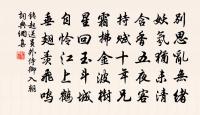 別思亂無緒
妖氛猶未清
含香五夜客
持賦十年兄
霜拂金波樹
星回玉斗城
自憐江上鶴
垂翅羨飛鳴
錢起送員外侍御入朝
詞典網書